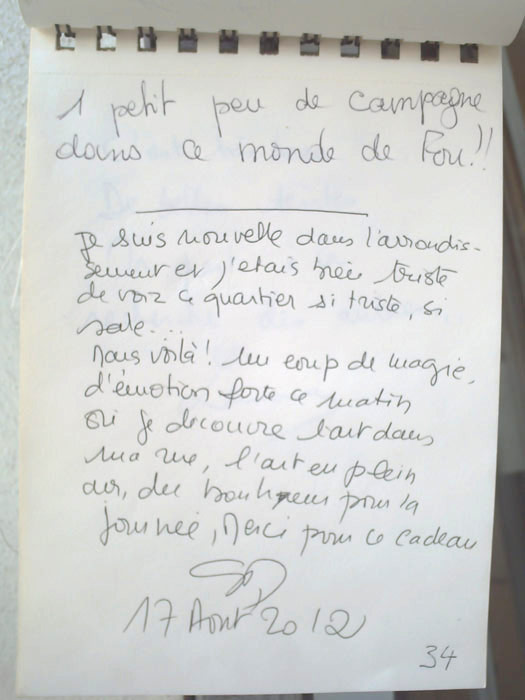 1 petit peu de campagne
dans ce monde de Fou!!
Je suis nouvelle dans l'arrondis-
sement et j'etais très triste
de voir ce quartier si triste, si
sale...
Mais voilà! Un coup de magie,
d'émotion forte ce matin
où je découvre l'art dans
ma rue, l'art en plein
air, du bonheur pour la
journée, Merci pour ce cadeau
17 Août 2012
34